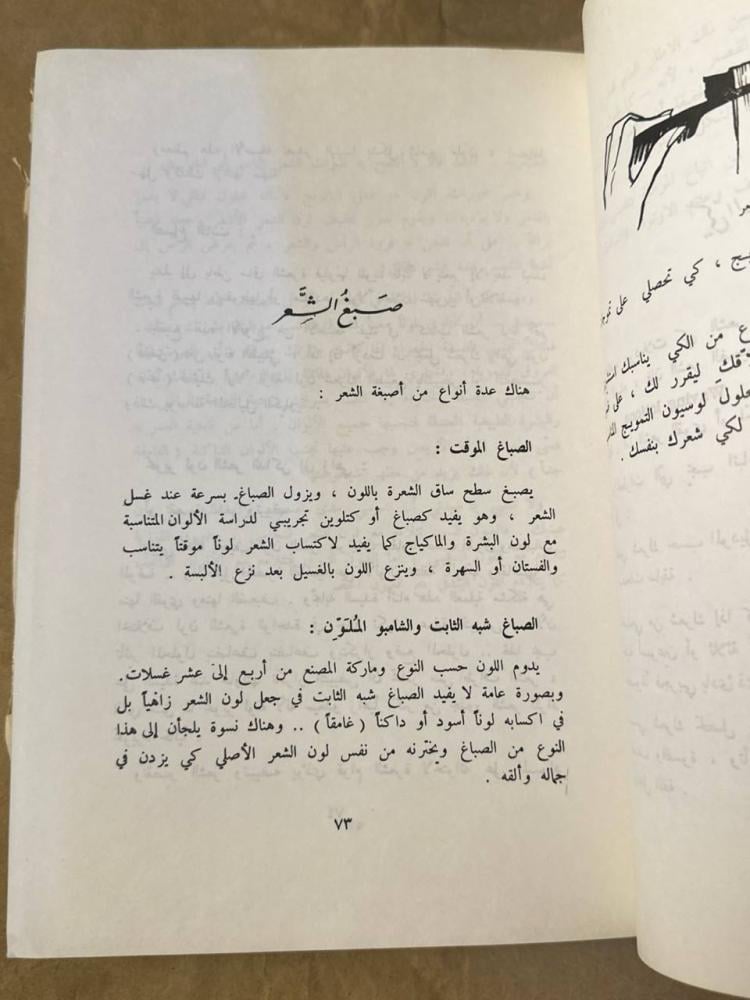 صَبغُ الشَّعر
هناك عدة أنواع من أصبغة الشعر :
الصباغ الموقت :
يصبغ سطح ساق الشعرة باللون ، ويزول الصباغ بسرعة عند غسل
الشعر ، وهو يفيد كصباغ أو كتلوين تجريبي لدراسة الألوان المتناسبة
مع لون البشرة والماكياج كما يفيد لاكتساب الشعر لوناً موقتاً يتناسب
والفستان أو السهرة ، وينزع اللون بالغسيل بعد نزع الألبسة .
الصباغ شبه الثابت والشامبو المُلَوِّن :
يدوم اللون حسب النوع وماركة المصنع من أربع إلى عشر غسلات.
وبصورة عامة لا يفيد الصباغ شبه الثابت في جعل لون الشعر زاهياً بل
في اكسابه لوناً أسود أو داكناً ( غامقاً ) .. وهناك نسوة يلجأن إلى هذا
النوع من الصباغ ويخترنه من نفس لون الشعر الأصلي كي يزدن في
جماله وألقه .
٧٣
، كي تحصلي على
من الكي يناسبك
ليقرر لك ، على
لوسيون التمويج
لكي شعرك بنفسك .